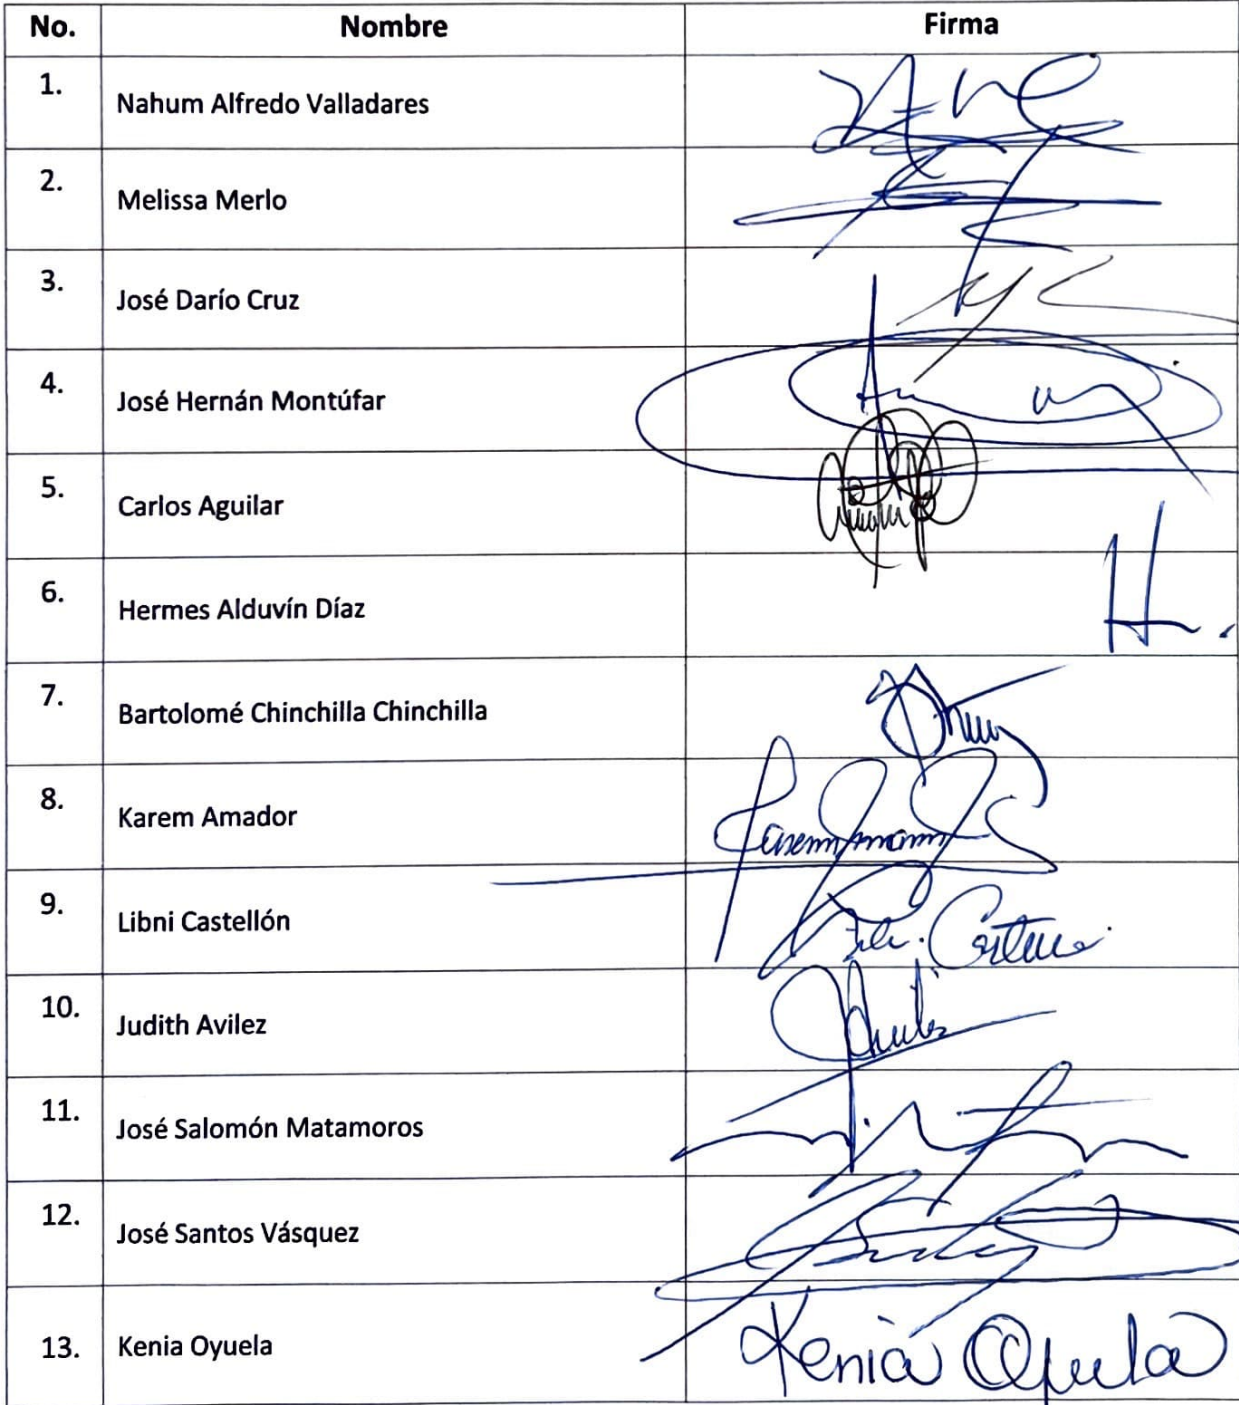 No. Nombre Firma
1. Nahum Alfredo Valladares
2. Melissa Merlo
3. José Darío Cruz
4. José Hernán Montúfar
5. Carlos Aguilar
6. Hermes Alduvín Díaz H.
7. Bartolomé Chinchilla Chinchilla
8. Karem Amador
9. Libni Castellón
10. Judith Avilez
11. José Salomón Matamoros
12. José Santos Vásquez
13. Kenia Oyuela Kenia Oyuela